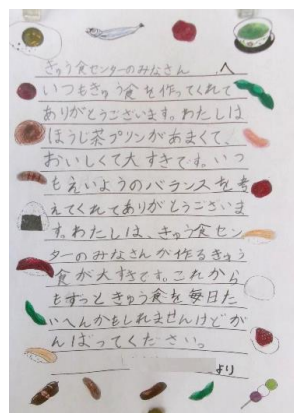 きゅう食センターのみなさん へ
いつもきゅう食を作ってくれて
ありがとうございます。わたしは
ほうじ茶プリンがあまくて、
おいしくて大すきです。いつ
もえいようのバランスを考
えてくれてありがとうございま
す。わたしは、きゅう食セン
ターのみなさんが作るきゅう
食が大すきです。これから
もずっときゅう食を毎日た
いへんかもしれませんけどが
んばってください。
より